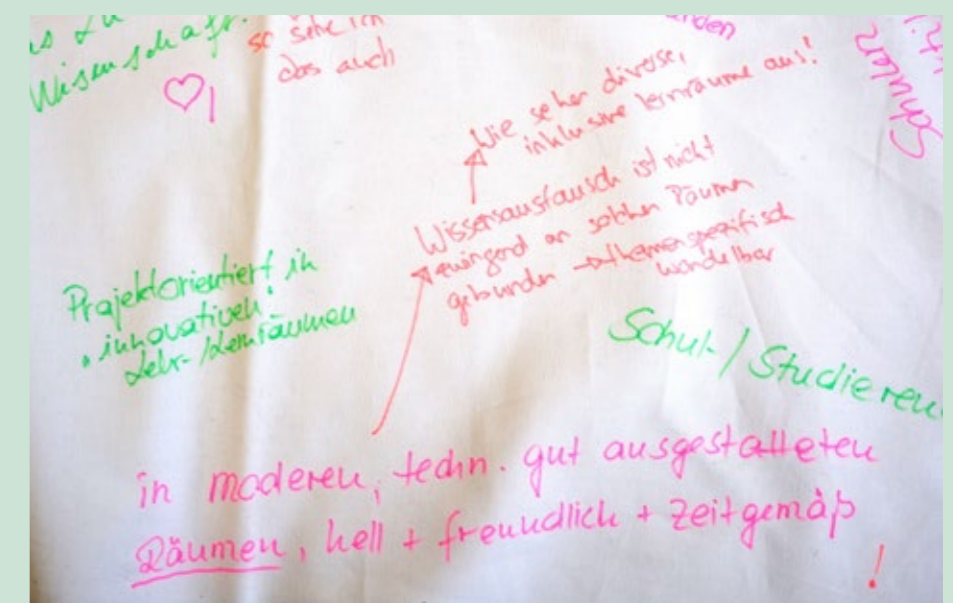 Wissenschaft.
so sehe ich
das auch
Schulen
Wie sehen diverse,
inklusive Lernräume aus!
Wissensaustausch ist nicht
zwingend an solchen Räumen
gebunden → themenspezifisch
wandelbar
Projektorientiert in
"innovativen"
Lehr-/Lernräumen
Schul-/Studieren
in moderen, techn. gut ausgestatteten
Räumen, hell + freundlich + zeitgemäß
!